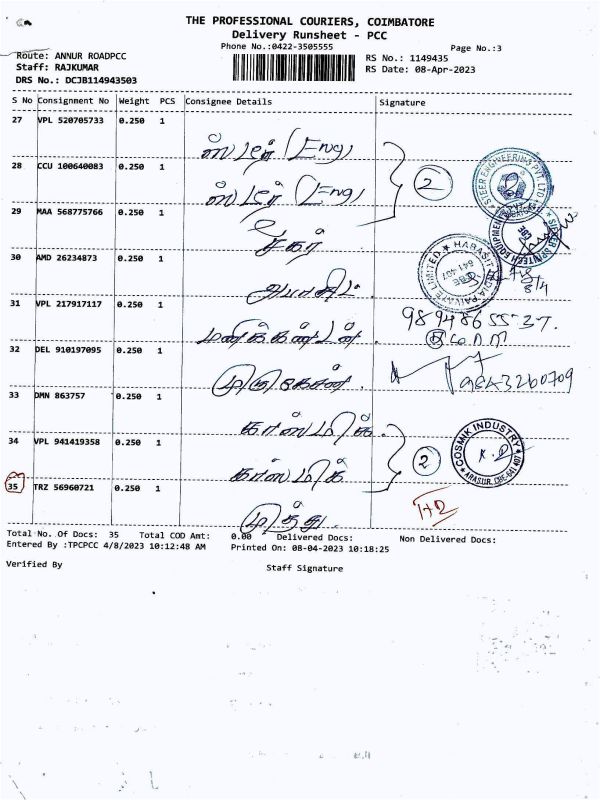 THE PROFESSIONAL COURIERS, COIMBATORE
Delivery Runsheet - PCC
Phone No.:0422-3505555
Page No.:3
Route: ANNUR ROADPCC
RS No.: 1149435
Staff: RAJKUMAR
RS Date: 08-Apr-2023
DRS No.: DCJB114943503
S No Consignment No Weight PCS Consignee Details Signature
27 VPL 520705733 0.250 1
ஸ்டீர் (Eng)
28 CCU 100640083 0.250 1
ஸ்டீர் (Eng)
2
STEER ENGINEERING PVT. LTD
29 MAA 568775766 0.250 1
சேகர்
30 AMD 26234873 0.250 1
HARASIT INDIA PRIVATE LIMITED
641 407
8/4
31 VPL 217917117 0.250 1
மணிகண்டன்
9894865537.
32 DEL 910197095 0.250 1
முருகேசன்
9843260709
33 DMN 863757 0.250 1
காஸ்மிக்
34 VPL 941419358 0.250 1
காஸ்மிக்
2
COSMIK INDUSTRY
ARASUR, CBE-641 407
35 TRZ 56960721 0.250 1
முத்து.
Total No. Of Docs: 35 Total COD Amt: 0.00 Delivered Docs: Non Delivered Docs:
Entered By :TPCPCC 4/8/2023 10:12:48 AM Printed On: 08-04-2023 10:18:25
Verified By
Staff Signature